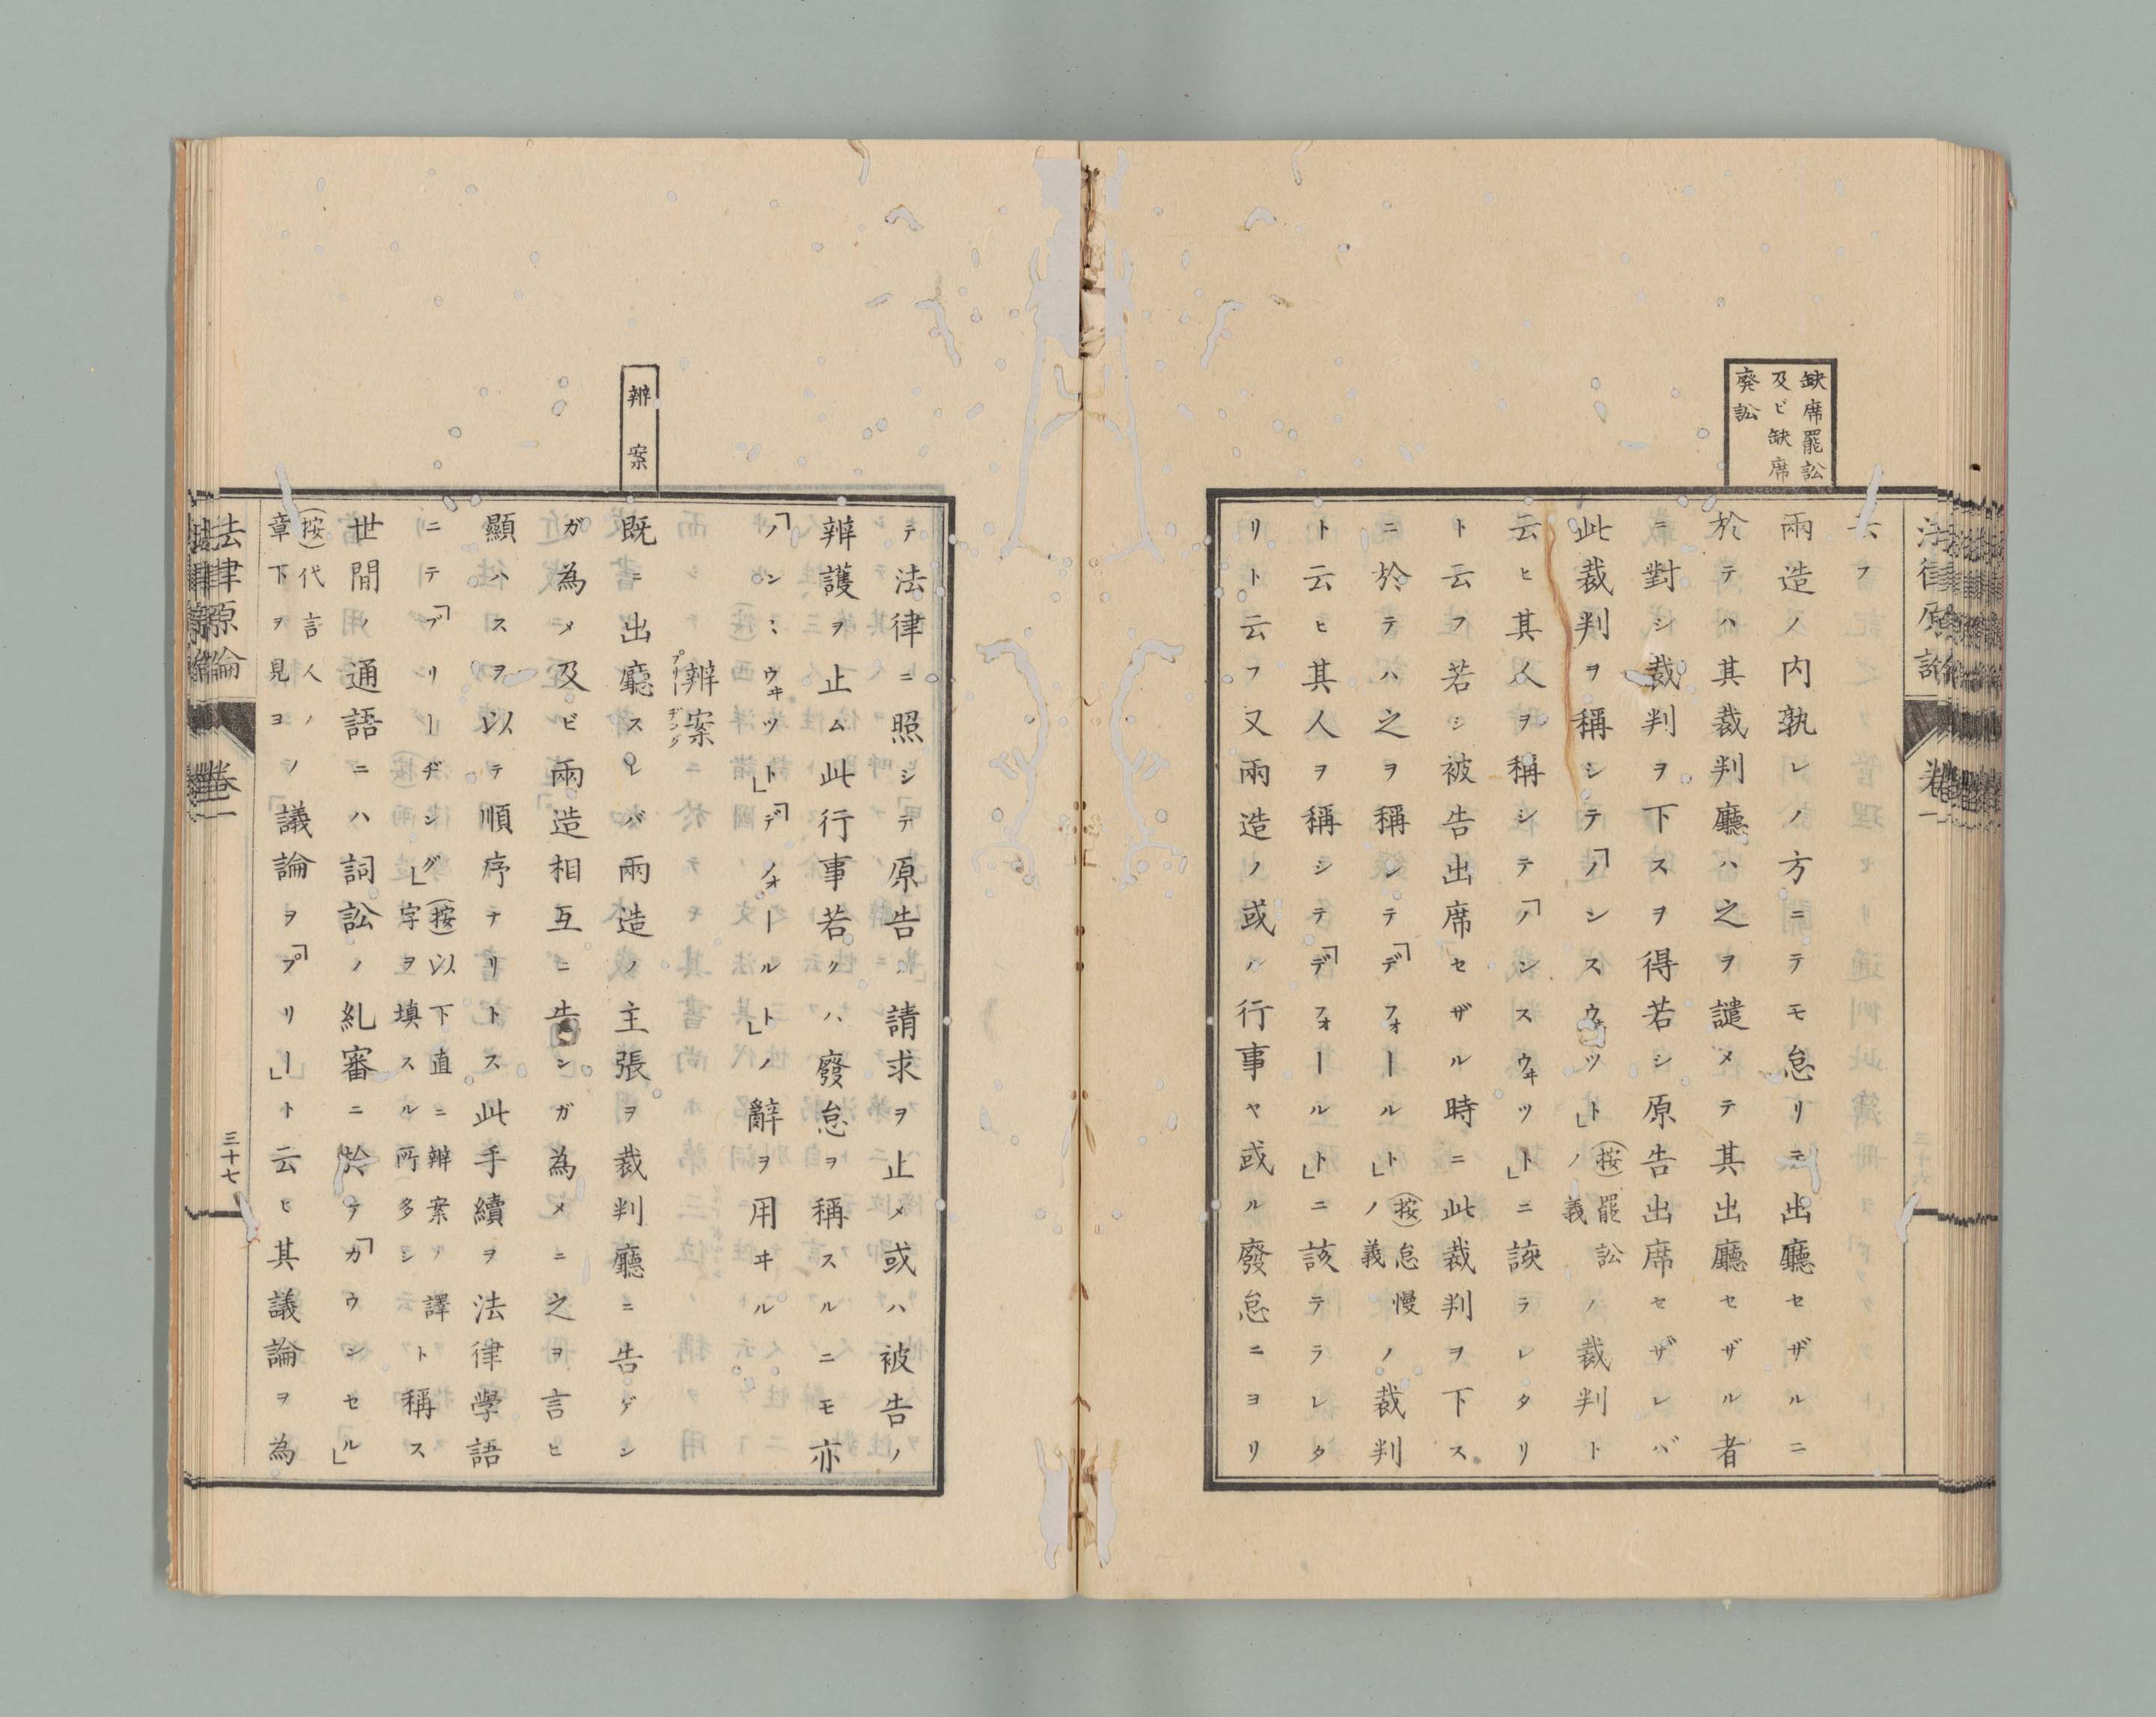 缺席罷訟
及ビ缺席
廢訟
法律原論
卷一
云フ
兩造ノ内孰レノ方ニテモ怠リテ出廳セザルニ
於テハ其裁判廳ハ之ヲ譴メテ其出廳セザル者
ニ對シ裁判ヲ下スヲ得若シ原告出席セザレバ
此裁判ヲ稱シテ「ノンスウヰツト」(按)罷訟ノ義ノ裁判ト
云ヒ其人ヲ稱シテ「ノンスウヰツト」ニ該ラレタリ
ト云フ若シ被告出席セザル時ニ此裁判ヲ下ス
ニ於テハ之ヲ稱シテ「デフォールト」ノ(按)怠慢義ノ裁判
ト云ヒ其人ヲ稱シテ「デフォールト」ニ該テラレタ
リト云フ又兩造ノ或ル行事ヤ或ル廢怠ニヨリ
テ法律ニ照シテ原告請求ヲ止メ或ハ被告ノ
辨護ヲ止ム此行事若クハ廢怠ヲ稱スルニモ亦
「ノンスウヰツト」「デフォールト」ノ辭ヲ用ヰル
辨案
辨案
プリーヂング
既ニ出廳スレバ兩造ノ主張ヲ裁判廳ニ告ゲシ
ガ為メ及ビ兩造相互ニ告ンガ為メニ之ヲ言ヒ
顯ハスヲ以テ順序テリトス此手續ヲ法律學語
ニテ「プリーヂング」(按)以下直ニ辨案ノ譯字ヲ填スル所多シト稱ス
世間ノ通語ニハ詞訟ノ糺審ニ於テ「カウンセル」
(按)代言人ノ章下ヲ見ヨノ議論ヲ「プリー」ト云ヒ其議論ヲ為
法律原論
卷一
三十七